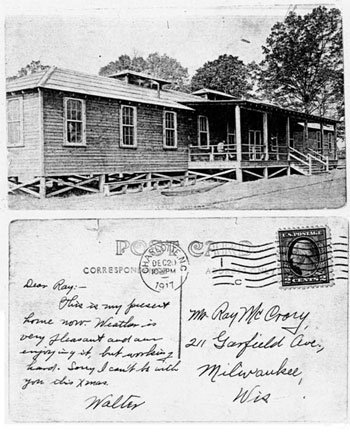 POST CARD
CORRESPON
CHARLOTTE, N.C.
DEC 20
PM
1917
U.S. POSTAGE
2 CENTS 2
Dear Ray:-
This is my present
home now. Weather is
very pleasant and am
enjoying it, but working
hard. Sorry I can't be with
you this Xmas.
Walter
Mr. Ray McCrory,
211 Garfield Ave.,
Milwaukee,
Wis